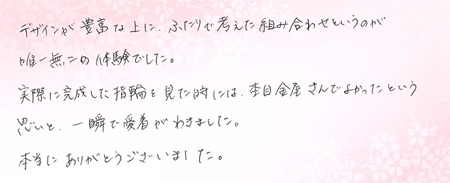 デザインが豊富な上に、ふたりで考えた組み合わせというのが
唯一無二の体験でした。
実際に完成した指輪を見た時には、杢目金屋さんでよかったという
思いと、一瞬で愛着がわきました。
本当にありがとうございました。